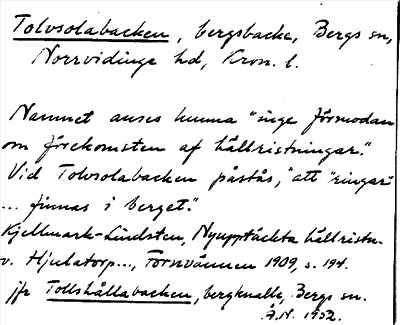 Tolvsolabacken, bergsbacke, Bergs sn,
Norrvidinge hd, Kron. l.
Namnet anses kunna "inge förmodan
om förekomsten af hällristningar."
Vid Tolvsolabacken påstås, "att "ringar"
... finnas i berget."
Kjellmark-Lindsten, Nyupptäckta hällristn.
v. Hjulatorp..., Fornvännen 1909, s. 194.
jfr Tollshällabacken, bergknalle, Bergs sn.
Å.N. 1952.